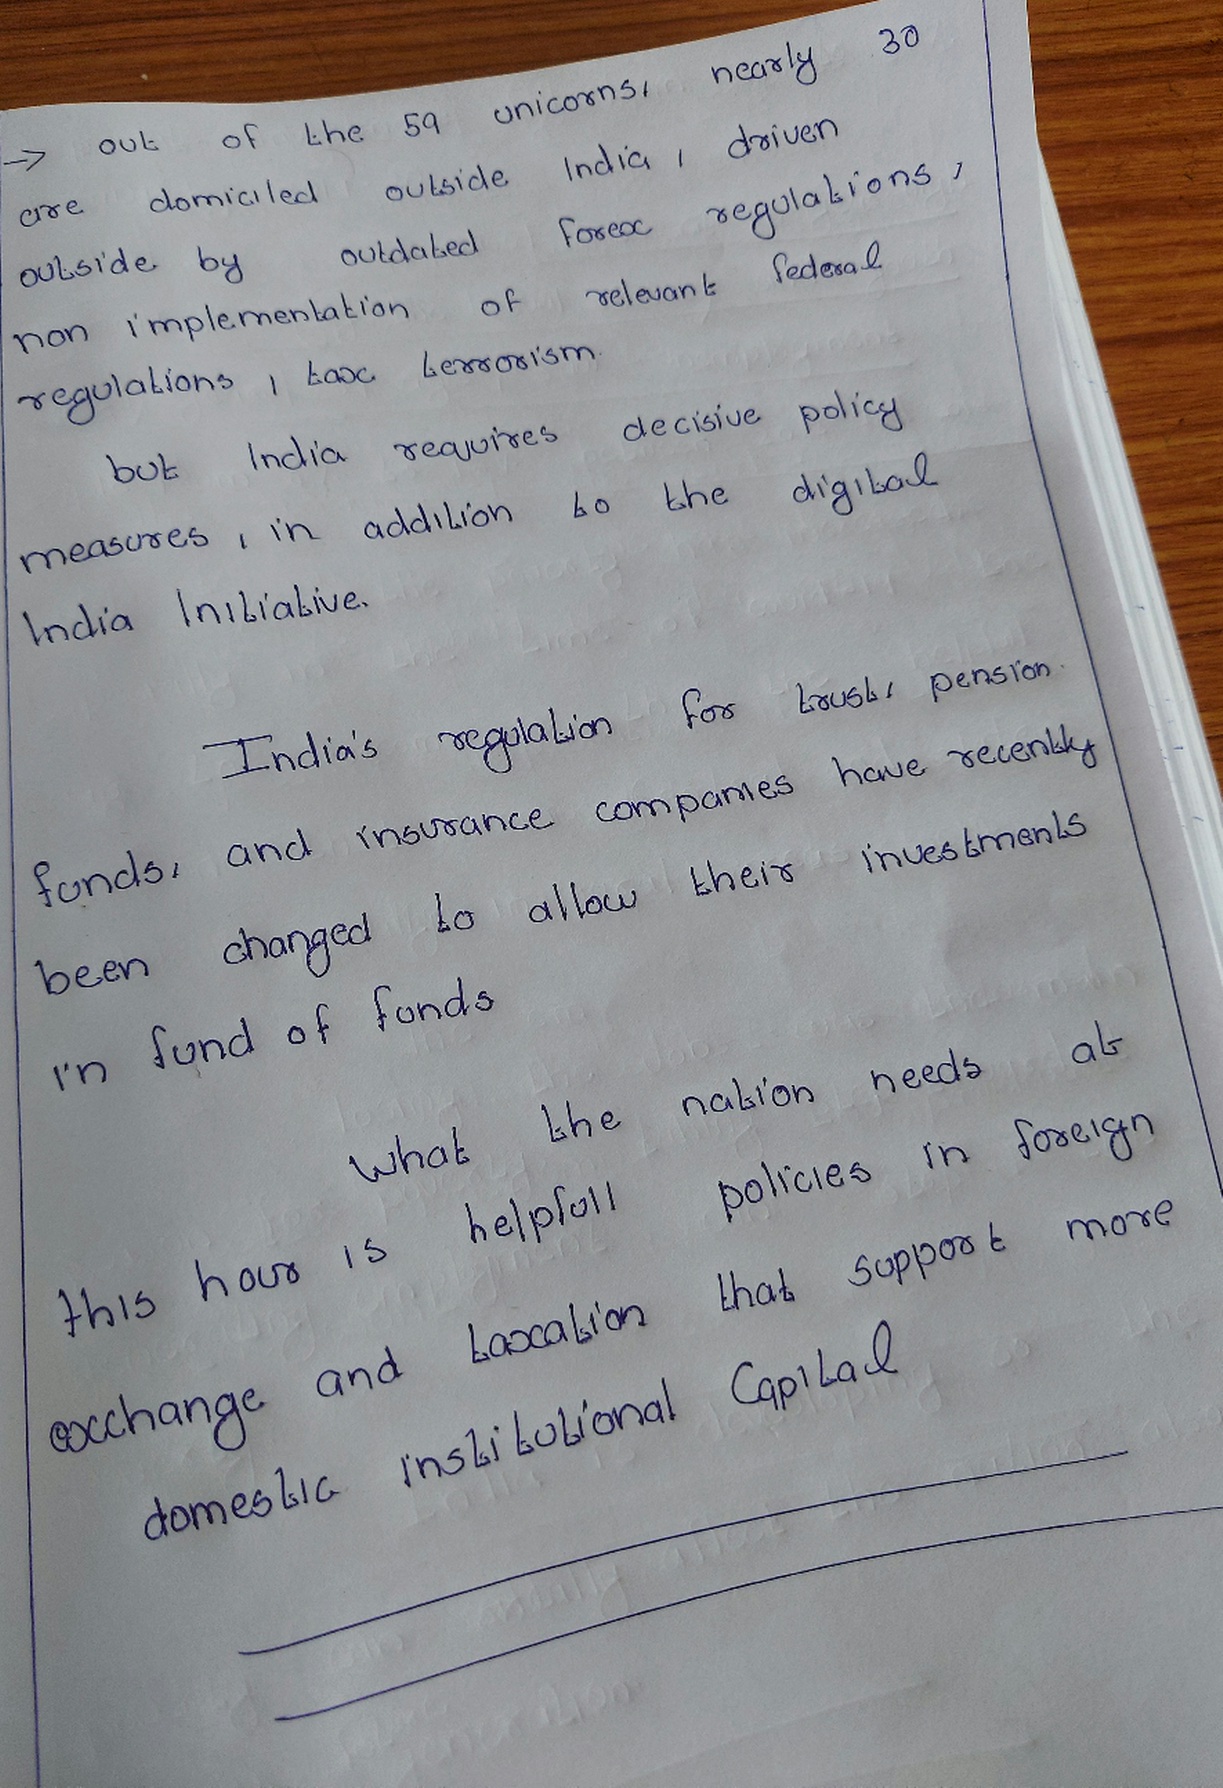 → out of the 59 unicorns, nearly 30
are domiciled outside India, driven
outside by outdated forex regulations,
non implementation of relevant federal
regulations, tax terrorism.
but India requires decisive policy
measures, in addition to the digital
India Initiative.
India's regulation for trust, pension
funds, and insurance companies have recently
been changed to allow their investments
in fund of funds
What the nation needs at
this hour is helpfull policies in foreign
exchange and taxation that support more
domestic institutional Capital